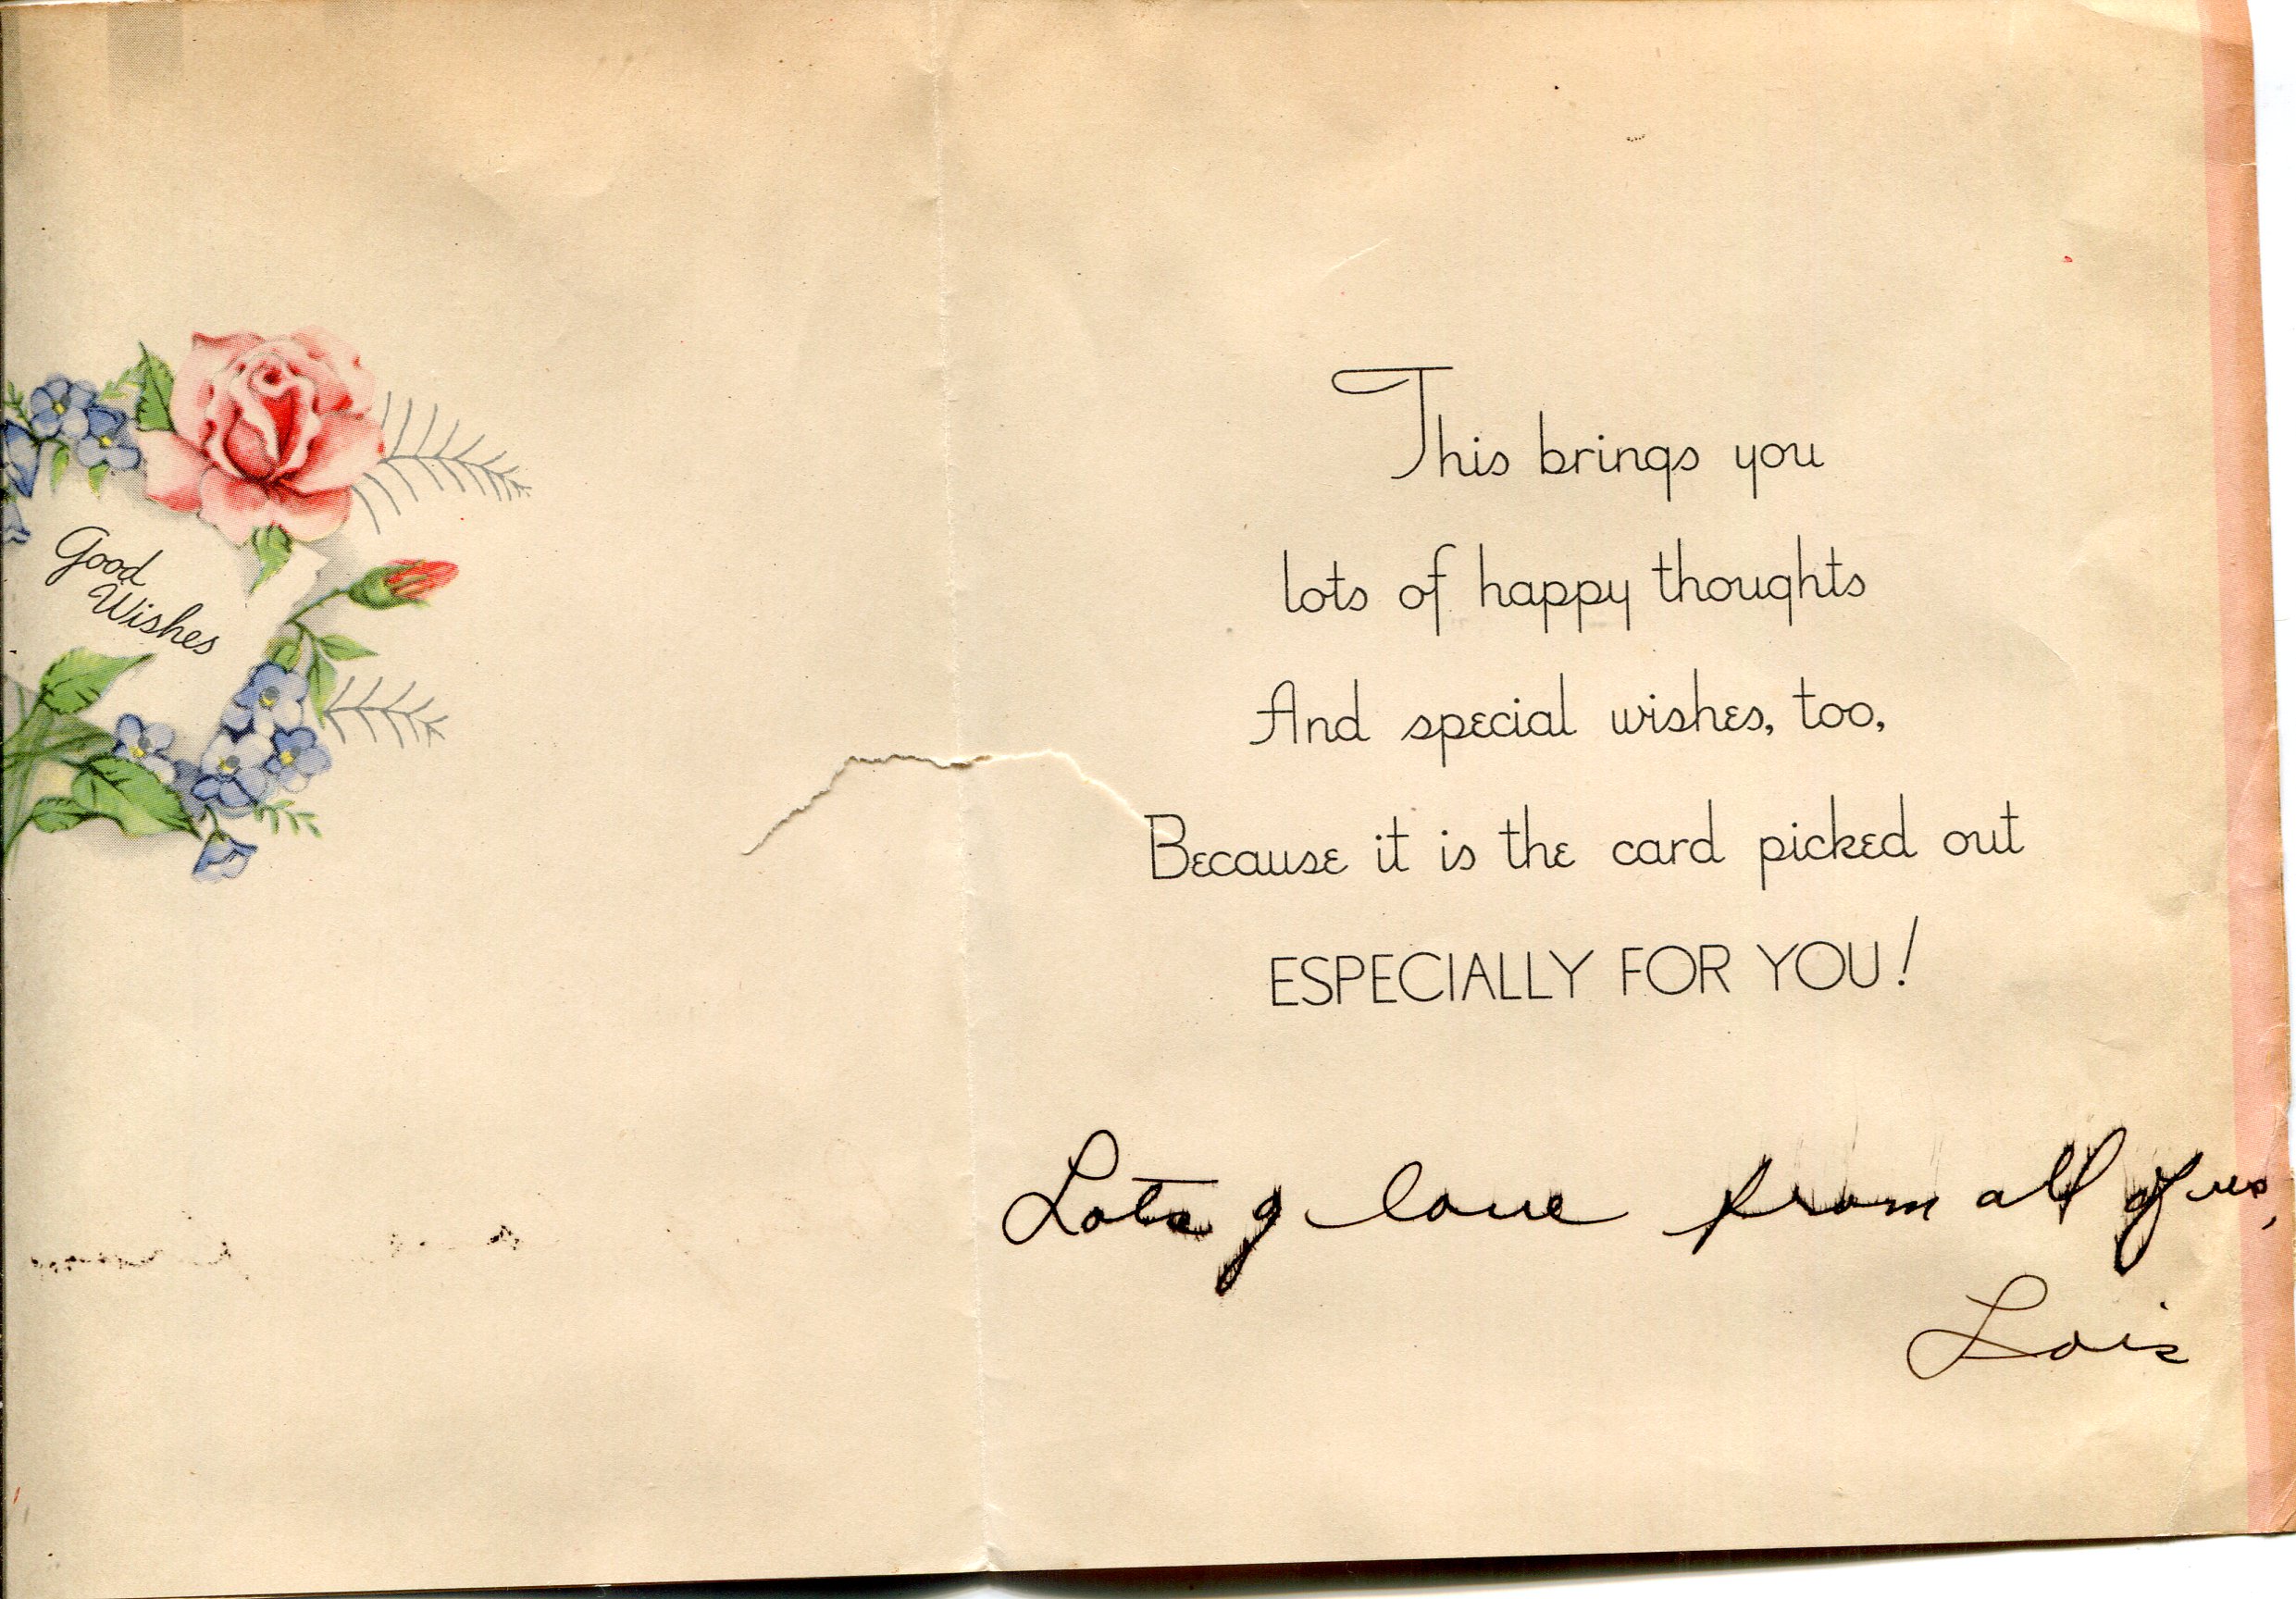 Good
Wishes
This brings you
lots of happy thoughts
And special wishes, too,
Because it is the card picked out
ESPECIALLY FOR YOU!
Lots of love from all of us,
Lois